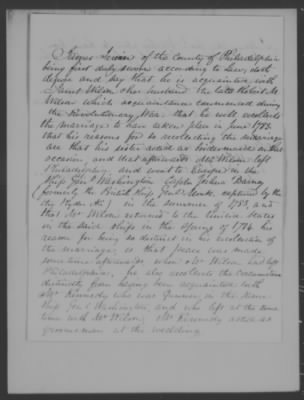 James Irwin of the County of Philadelphia
being first duly sworn according to Law, doth
depose and say that he is acquainted with
Wilson & her husband the late Robert M.
Wilson which acquaintance commenced during
the Revolutionary War, that he well recollects
the marriage to have taken place in June 1783.
that his reasons for so recollecting the marriage
are that his sister acted as bridesmaid on that
occasion, and that afterwards Mr Wilson left
Philadelphia and went to Europe in the
Ship Genl Washington Captn Joshua Barney
formerly the British Ship Genl Monk, captured by the
Ship Hyder Ali) in the summer of 1783, and
that Mr Wilson returned to the United States
in the said Ship in the Spring of 1784 his
reason for being so distinct in his recollection of
the marriage, is that peace was made
some time afterwards when Mr Wilson had left
Philadelphia, he also recollects the circumstance
distinctly from having been acquainted with
Mr Kennedy who was Purser in the same
Ship Genl Washington, and who left at the same
time with Mr Wilson, Mr Kennedy acted as
groomsman at the wedding